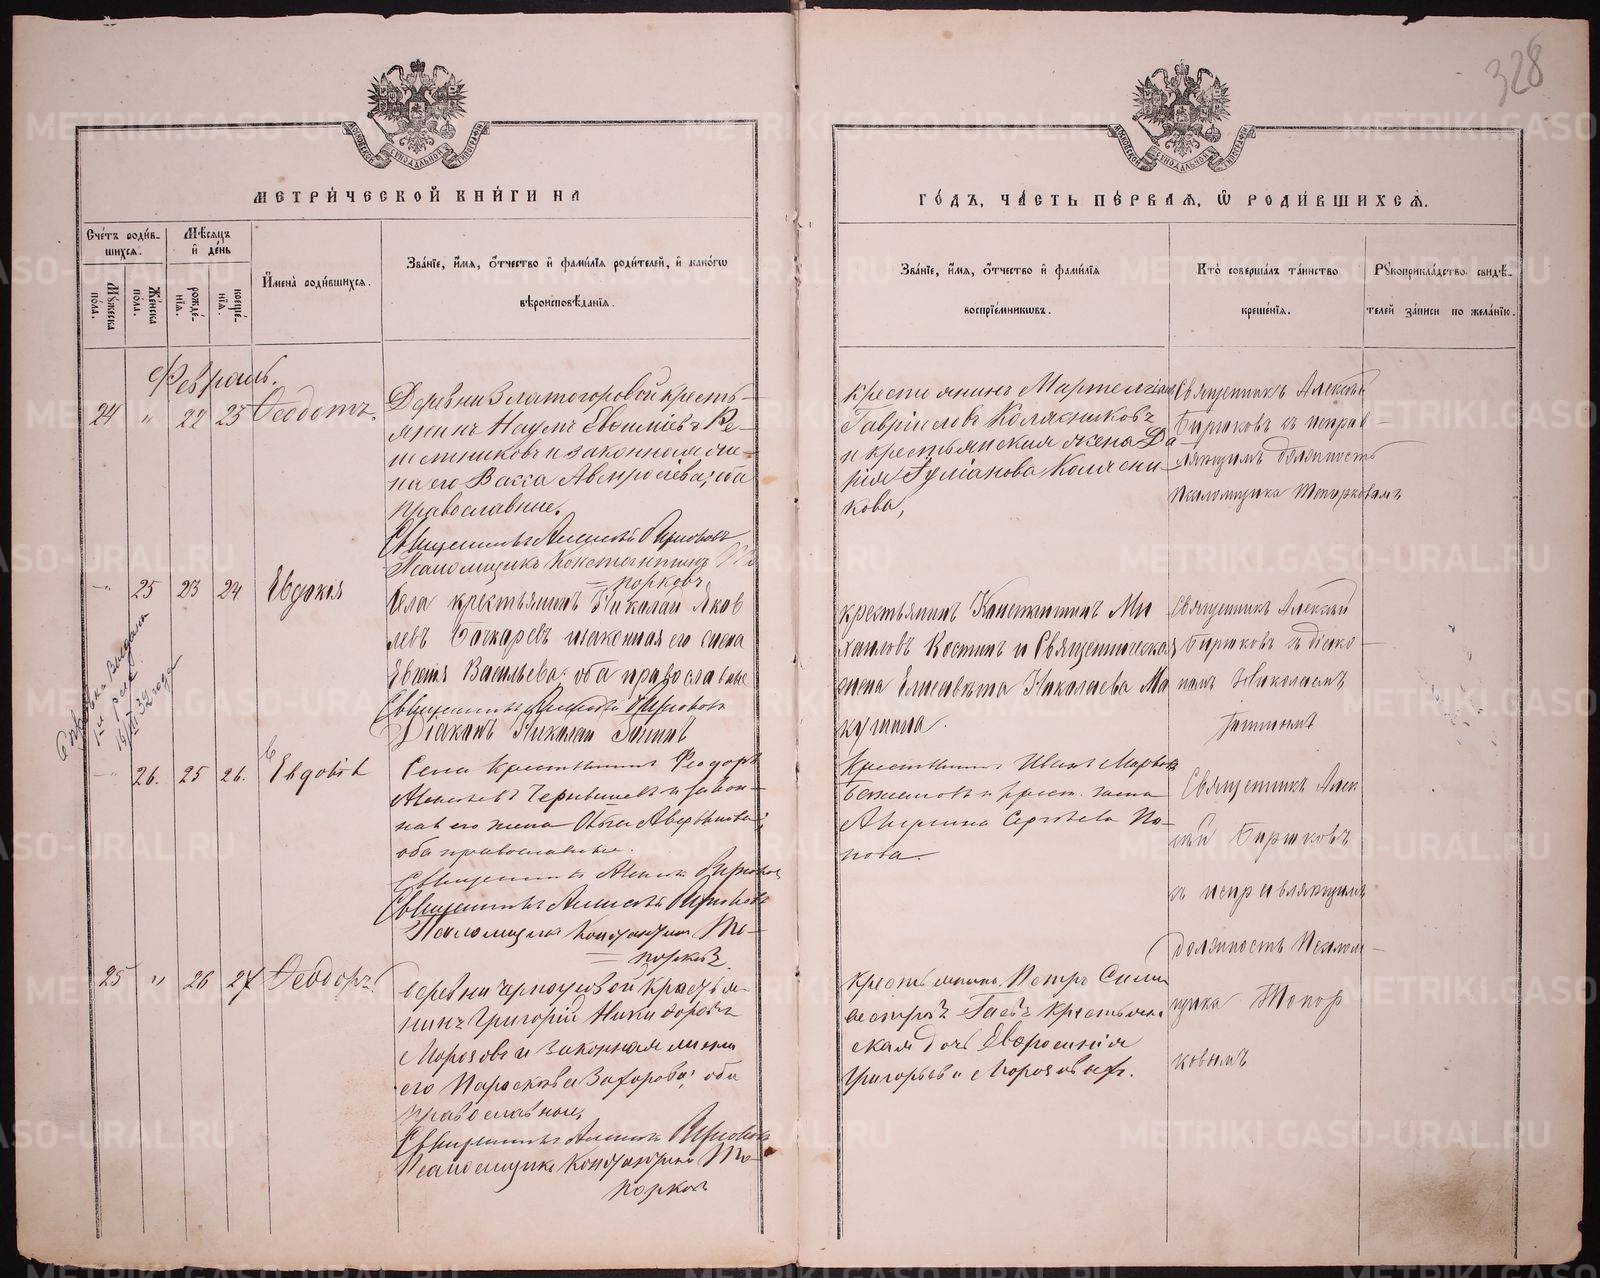 328
МЕТРИ́ЧЕСКОЙ КНИ́ГИ НА
ГО́ДЪ, ЧА́СТЬ ПЕ́РВАЯ, Ѡ РОДИ́ВШИХСѦ.
Сче́тъ роди́в-
шихсѧ.
Мѣ́сяцъ
и҆ де́нь
Мꙋ́жеска
по́ла.
Же́нска
по́ла.
рожде́-
нїѧ.
креще́-
нїѧ.
И҆мена̀ роди́вшихсѧ.
Зва́нїе, и҆́мѧ, ѻ҆́тчество и҆ фами́лїѧ роди́телей, и҆ како́гѡ
вѣроисповѣ́данїѧ.
Зва́нїе, и҆́мѧ, ѻ҆́тчество и҆ фами́лїѧ
воспрїе́мникѡвъ.
Кто̀ соверша́лъ та́инство
креще́нїѧ.
Рꙋкоприкла́дство свидѣ́-
телей за́писи по жела́нїю.
Февраль.
24 " 22 23 Ѳеодотъ.
Деревни Златогоровой кресть-
янинъ Наумъ Евѳиміевъ Ре-
шетниковъ и законная же-
на его Васса Амвросіева; оба
православные.
Священникъ Алексѣй Бирюковъ
Псаломщикъ Константинъ То-
порковъ
крестьянинъ
Гавріиловъ Колясниковъ
и крестьянская жена Да-
рія Колясни-
кова,
Священникъ Алексѣй
Бирюковъ съ исправ-
ляющимъ должность
псаломщика Топорковымъ
" 25 23 24 Евдокія
Села крестьянинъ Николай Яков
левъ Бочкаревъ и законная его жена
Васильева; оба православные
Священникъ Алексѣй Бирюковъ
Діаконъ Николай
крестьянинъ Константинъ Ми
хаиловъ Костинъ и Священническая
жена Елисавета Николаева Ма
кушина.
Священникъ Алексѣй
Бирюковъ съ діако-
номъ Николаемъ
Справка выдана
19/III 32 года
" 26. 25 26. Евдокія
Села крестьянинъ Ѳеодоръ
Алексѣевъ и закон-
ная его жена Ольга
оба православные.
Священникъ Алексѣй Бирюковъ
Священникъ Алексѣй Бирюковъ
Псаломщикъ Константинъ То-
порковъ.
Крестьянинъ Иванъ
и крест. жена
Сергѣева По-
пова.
Священникъ Алек
сѣй Бирюковъ
съ исправляющимъ
должность Псалом-
щика Топор
ковымъ
25 " 26 27 Ѳеодоръ.
деревни крестья-
нинъ Григорій Никифоровъ
Морозовъ и законная жена
его Параскева Захарова; оба
православные,
Священникъ Алексѣй Бирюковъ
Псаломщикъ Константинъ То-
порковъ
крестьянинъ Петръ Силь
вестровъ крестьянс
кая дочь Евфросинія
Григорьева Морозовыхъ.